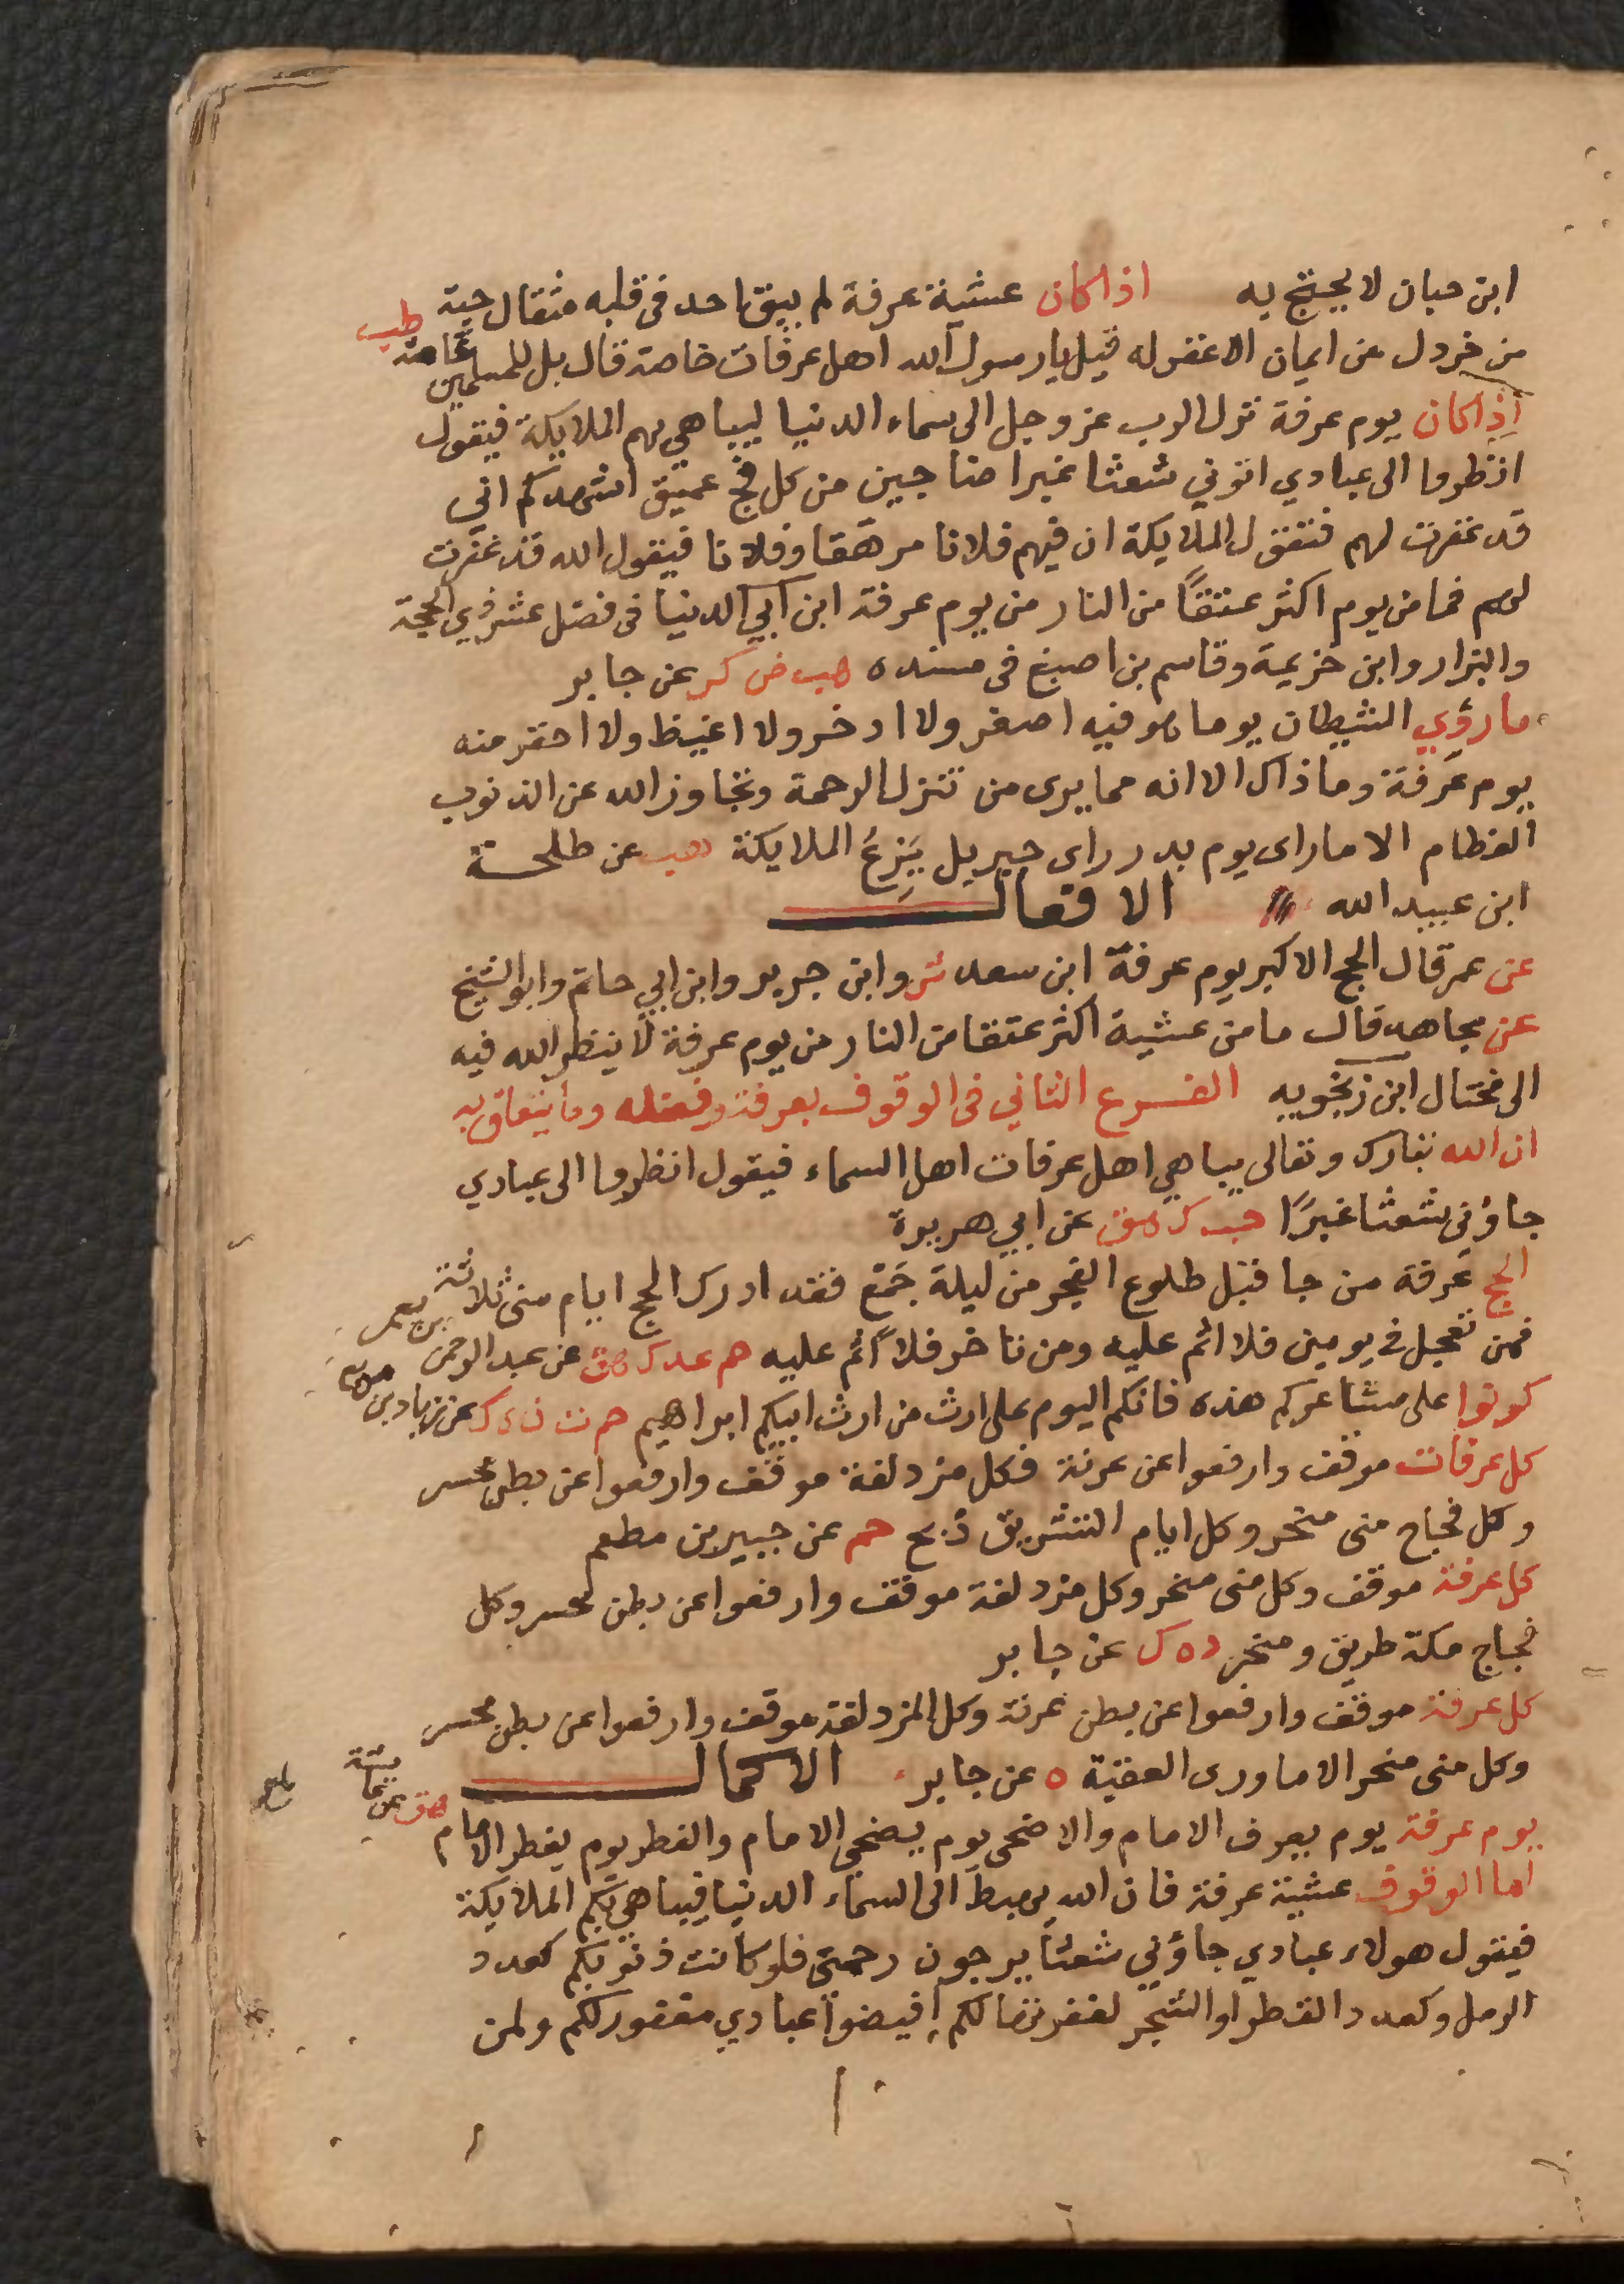 ابن حبان لا يحتج به اذا كان عشية عرفة لم يبق احد في قلبه مثقال حبة
من خردل من ايمان الا غفر له قيل يا رسول الله اهل عرفات خاصة قال بل للمسلمين عامة طب
اذا كان يوم عرفة نزل الرب عز وجل الى سماء الدنيا ليباهي بهم الملايكة فيقول
انظروا الى عبادي اتوني شعثا غبرا ضاجين من كل فج عميق اشهدكم اني
قد غفرت لهم فتقول الملايكة ان فيهم فلانا مرهقا وفلانا فيقول الله قد غفرت
لهم فما من يوم اكثر عتقاً من النار من يوم عرفة ابن ابي الدنيا في فضل عشر ذي الحجة
والبزار وابن خزيمة وقاسم بن اصبغ في مسنده هب ض كر عن جابر
ما رؤي الشيطان يوما هو فيه اصغر ولا ادخر ولا اغيظ ولا احقر منه
يوم عرفة وما ذاك الا انه مما يرى من تنزل الرحمة وتجاوز الله عن الذنوب
العظام الا ما راى يوم بدر راى جبريل يَزِعُ الملايكة هب عن طلحة
ابن عبيد الله الافعال
عن عمر قال الحج الاكبر يوم عرفة ابن سعد ش وابن جرير وابن ابي حاتم وابو الشيخ
عن مجاهد قال ما من عشية اكثر عتقا من النار من يوم عرفة لا ينظر الله فيه
الى مختال ابن زنجويه الفرع الثاني في الوقوف بعرفة وفضله وما يتعلق به
ان الله تبارك وتعالى يباهي اهل عرفات اهل السماء فيقول انظروا الى عبادي
جاؤني شعثا غبرًا حب ك هق عن ابي هريرة
الحج عرفة من جا قبل طلوع الفجر من ليلة جَمْع فقد ادرك الحج ايام منى ثلاثة
فمن تعجل في يومين فلا اثم عليه ومن تاخر فلا اثم عليه حم عد ك هق عن عبد الرحمن بن يعمر
كونوا على مشاعركم هذه فانكم اليوم على ارث من ارث ابيكم ابراهيم حم ت ن ه ك عن يزيد بن
كل عرفات موقف وارفعوا عن عرنة وكل مزدلفة موقف وارفعوا عن بطن محسر
وكل فجاج منى منحر وكل ايام التشريق ذبح حم عن جبير بن مطعم
كل عرفة موقف وكل منى منحر وكل مزدلفة موقف وارفعوا عن بطن محسر وكل
فجاج مكة طريق ومنحر د ه ك عن جابر
كل عرفة موقف وارفعوا عن بطن عرنة وكل المزدلفة موقف وارفعوا عن بطن محسر
وكل منى منحر الا ما ورى العقبة ه عن جابر الاكمال
يوم عرفة يوم يعرف الامام والاضحى يوم يضحي الامام والفطر يوم يفطر الامام هق عن عايشة
اما الوقوف عشية عرفة فان الله يهبط الى السماء الدنيا فيباهي بكم الملايكة
فيقول هولاء عبادي جاؤني شعثاً يرجون رحمتي فلو كانت ذنوبكم كعدد
الرمل وكعدد القطر او الشجر لغفرتها لكم افيضوا عبادي مغفور لكم ولمن